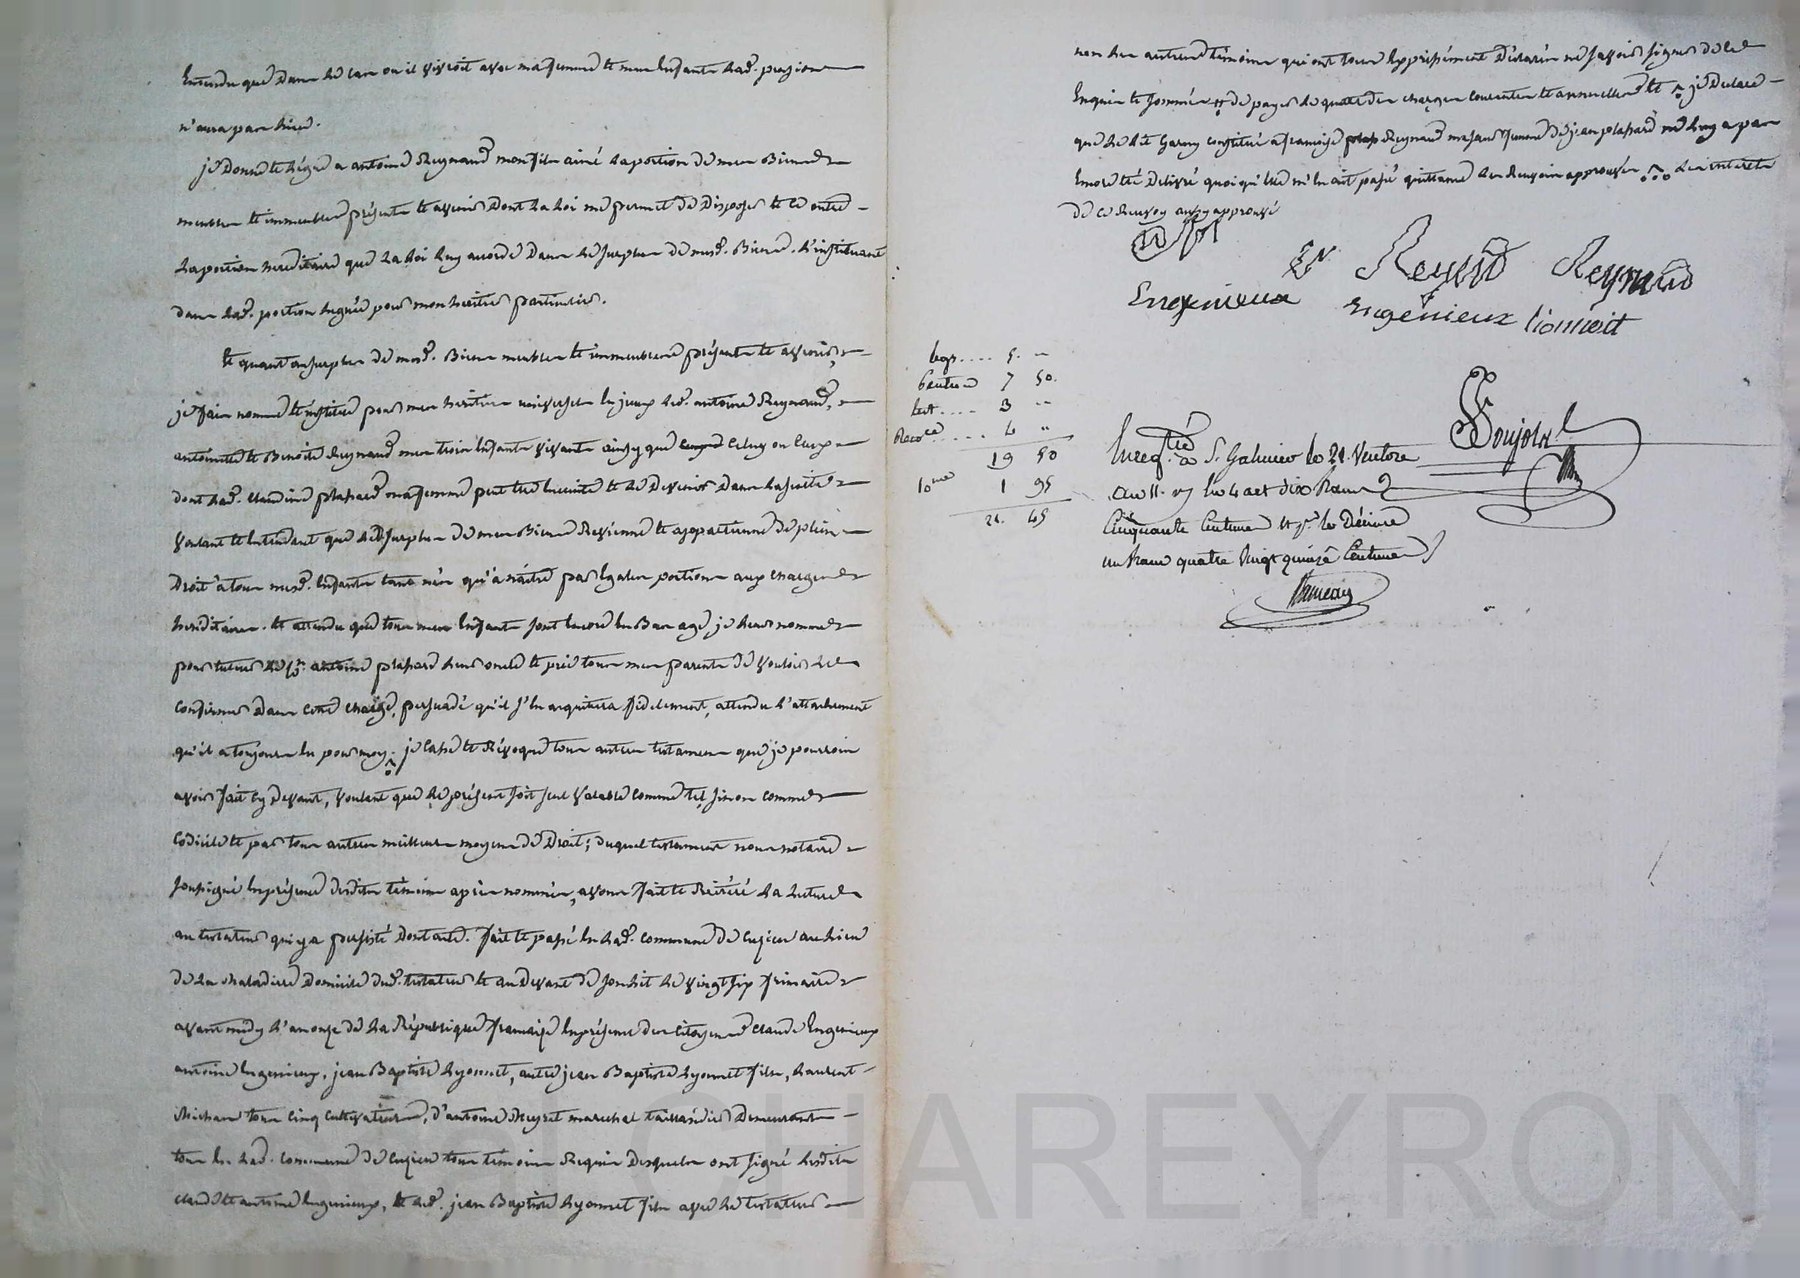 Entendu que dans le cas ou il vivroit avec ma femme et mes enfants lad. pension
n'aura pas lieu.
je Donne et Légue a antoine Reynaud mon fils ainé la portion de mes Biens
meubles et immeubles présents et avenir Dont la Loi me permet de Disposer et ce outre
la portion héréditaire que la Loi luy accorde Dans le surplus de mesd. Biens. L'instituant
dans lad. portion léguée pour mon héritier particulier.
et quant au surplus de mesd. Biens meubles et immeubles présents et avenir,
je fais nomme et institue pour mes héritiers universels led. antoine Reynaud,
antoinette et Benoite Reynaud mes trois enfants vivants ainsy que celuy ou ceux
dont lad. Claudine plahard ma femme peut être enceinte et le Devenir Dans la suitte
Voulant et Entendant que led. surplus de mes Biens Revienne et appartienne de plein
Droit a tous mesd. Enfants tant nés qu'à naître par Egales portions aux charges
héréditaires. Et attendu que tous mes Enfants sont encore en Bas age, je leurs nomme
pour tuteur le Cn. antoine plahard leurs oncle et prie tous mes parents de vouloir le
confirmer dans cette charge, persuadé qu'il s'en acquittera fidelement, attendu l'attachement
qu'il a toujours eu pour moy. je Casse et Révoque tous autres testaments que je pourrois
avoir fait cy Devant, Voulant que le présent soit seul valable comme tel, sinon comme
Codicile et par tous autres meilleurs moyens de Droit; duquel testament nous notaire
soussigné En présence desdits témoins après nommés, avons fait et Réitéré la lecture
au testateur qui y a persisté Dont acte. fait et passé en lad. commune de Cuzieu au lieu
de la Maladiere Domicile dud. testateur et au Devant de son lit le vingt six frimaire
avant midy l'an onze de la République française En présence des Citoyens Claude Engenieux
antoine Engenieux, jean Baptiste Lyonnet, autre jean Baptiste Lyonnet fils, Laurent
Michon tous cinq cultivateurs, d'antoine Meyret marechal taillandier Demeurants
tous en lad. Commune de Cuzieu tous témoins Requis Desquels ont signé lesdits
Claude et antoine Engenieux, et led. jean Baptiste Lyonnet fils avec le testateur
non les autres témoins qui ont tous Expressément Déclaré ne savoir signer de ce
Enquis et sommés de payer les quotes des charges courantes et annuelles et je Declare
que le Lit Garny constitué a françoise Reynaud ma sœur femme de jean plahard ne luy a pas
Encore été Delivré quoi qu'elle m'en ait passé quittance Les Renvois approuvés
de ce Renvoy aussy approuvé
Engenieux
Reynaud Reynaud
Engenieux lionnoit
legs.... 5. "
7 50.
test.... 3 "
4 "
19 50
10me 1 95
21. 45
Soujol
Enregtré à St Galmier le 21 Ventose
an 11. dix neuf francs
Cinquante Centimes et pr. le Décime
un franc quatre Vingt quinze Centimes
Rameau
CHAREYRON